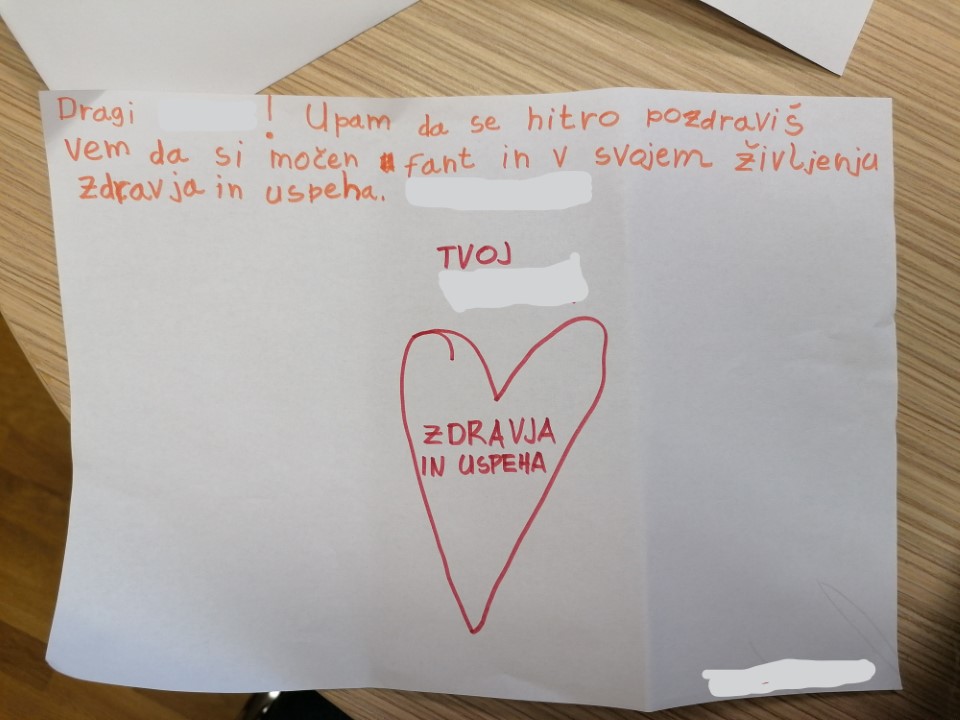 Dragi ! Upam da se hitro pozdraviš
Vem da si močen fant in v svojem življenju
zdravja in uspeha.
TVOJ
ZDRAVJA
IN USPEHA